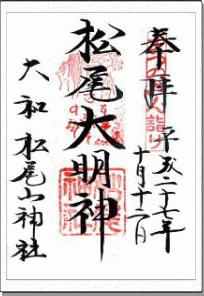 奉拝
平成二十七年
十月十二日
松尾大明神
大和松尾山神社